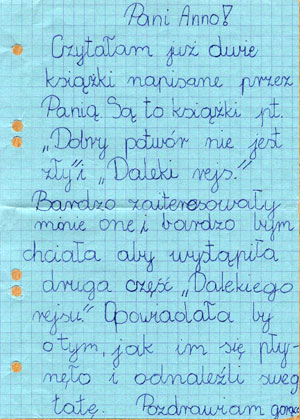 Pani Anno!
Czytałam już dwie
książki napisane przez
Panią. Są to książki pt.
„Dobry potwór nie jest
zły" i „Daleki rejs."
Bardzo zaiteresowały
mnie one i bardzo bym
chciała aby wystąpiła
druga część „Dalekiego
rejsu". Opowiadała by
o tym, jak im się pły-
nęło i odnaleźli sweg
tatę. Pozdrawiam